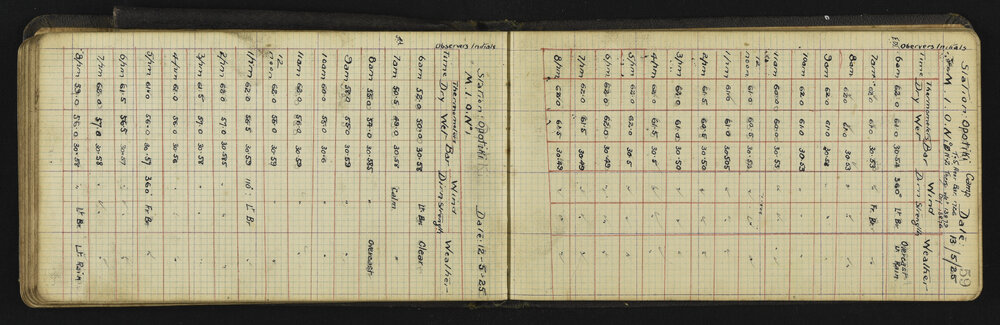 Station Opotiki Date: 12-5-25
M.I.O. No 1
Thermometer Wind
Time Dry Wet Bar Dir'n Strength Weather
Observers Initials
6am 52.0 50.0 30.58 Lt Br. Clear
7am 50.5 49.0 30.58 Calm
8am 55.0 53.0 30.585 Overcast
9am 58.0 55.0 30.59
10am 61.0 58.0 30.6
11am 62.0 58.0 30.59
12
noon 62.0 30.59
1pm 62.0 56.5 30.59 110° Lt Br
2pm 62.0 57.0 30.585
3pm 61.5 57.0 30.58
4pm 61.0 57.0 30.58
5pm 61.0 56.0 30.57 360° Fr Br.
6pm 61.5 56.5 30.57
7pm 62.0 57.0 30.58
8pm 59.0 56.0 30.58 Lt Br. Lt Rain
59
Station Opotiki Camp Date: 13/5/25
M.I.O. No
Thermometers Wind
Time Dry Wet Bar Dir'n Strength Weather
Observers Initials
6am 62.0 61.0 30.54 360° Lt Br Overcast
Lt Rain
7am 62.0 61.0 30.53 Fr. Br.
8am 62.0 61.0 30.53
9am 62.0 61.0 30.54
10am 61.0 61.0 30.53
11am 60.0 60.0 30.53
12
noon 61.0 60.5 30.53
1pm 61.0 61.0 30.505
2pm 61.5 60.5 30.50
3pm 62.0 61.0 30.50
4pm 62.0 61.5 30.5
5pm 63.0 62.0 30.5
6pm 62.5 62.0 30.49
7pm 62.0 61.5 30.49
8pm 62.0 61.5 30.49